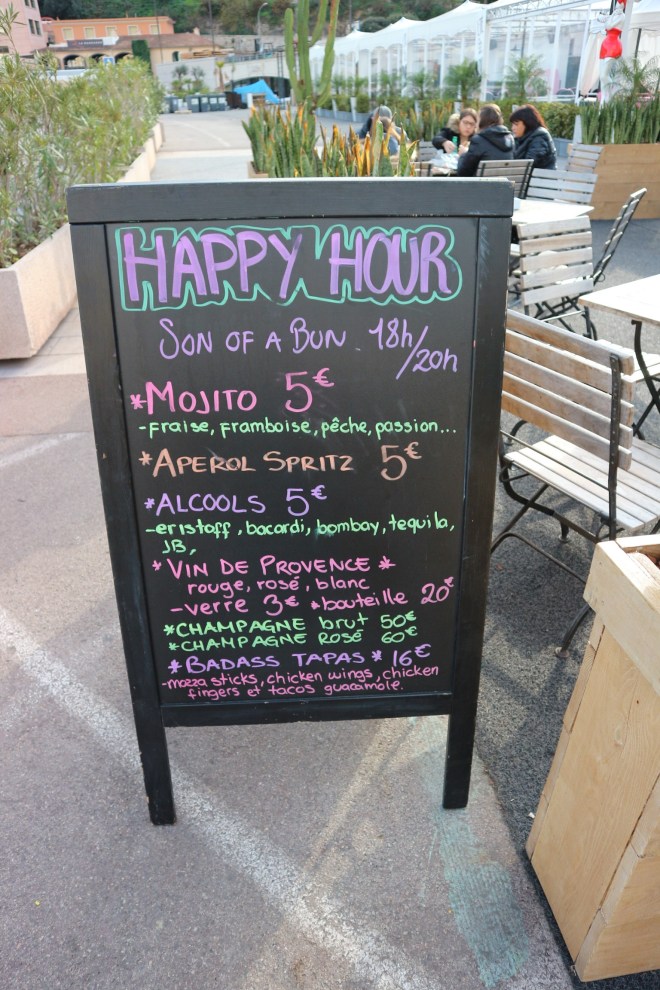 HAPPY HOUR
SON OF A BUN 18h/20h
*MOJITO 5€
-fraise, framboise, pêche, passion...
*APEROL SPRITZ 5€
*ALCOOLS 5€
-eristoff, bacardi, bombay, tequila,
JB,
*VIN DE PROVENCE*
rouge, rosé, blanc
-verre 3€ *bouteille 20€
*CHAMPAGNE brut 50€
*CHAMPAGNE ROSÉ 60€
*BADASS TAPAS* 16€
-mozza sticks, chicken wings, chicken
fingers et tacos guacamole.